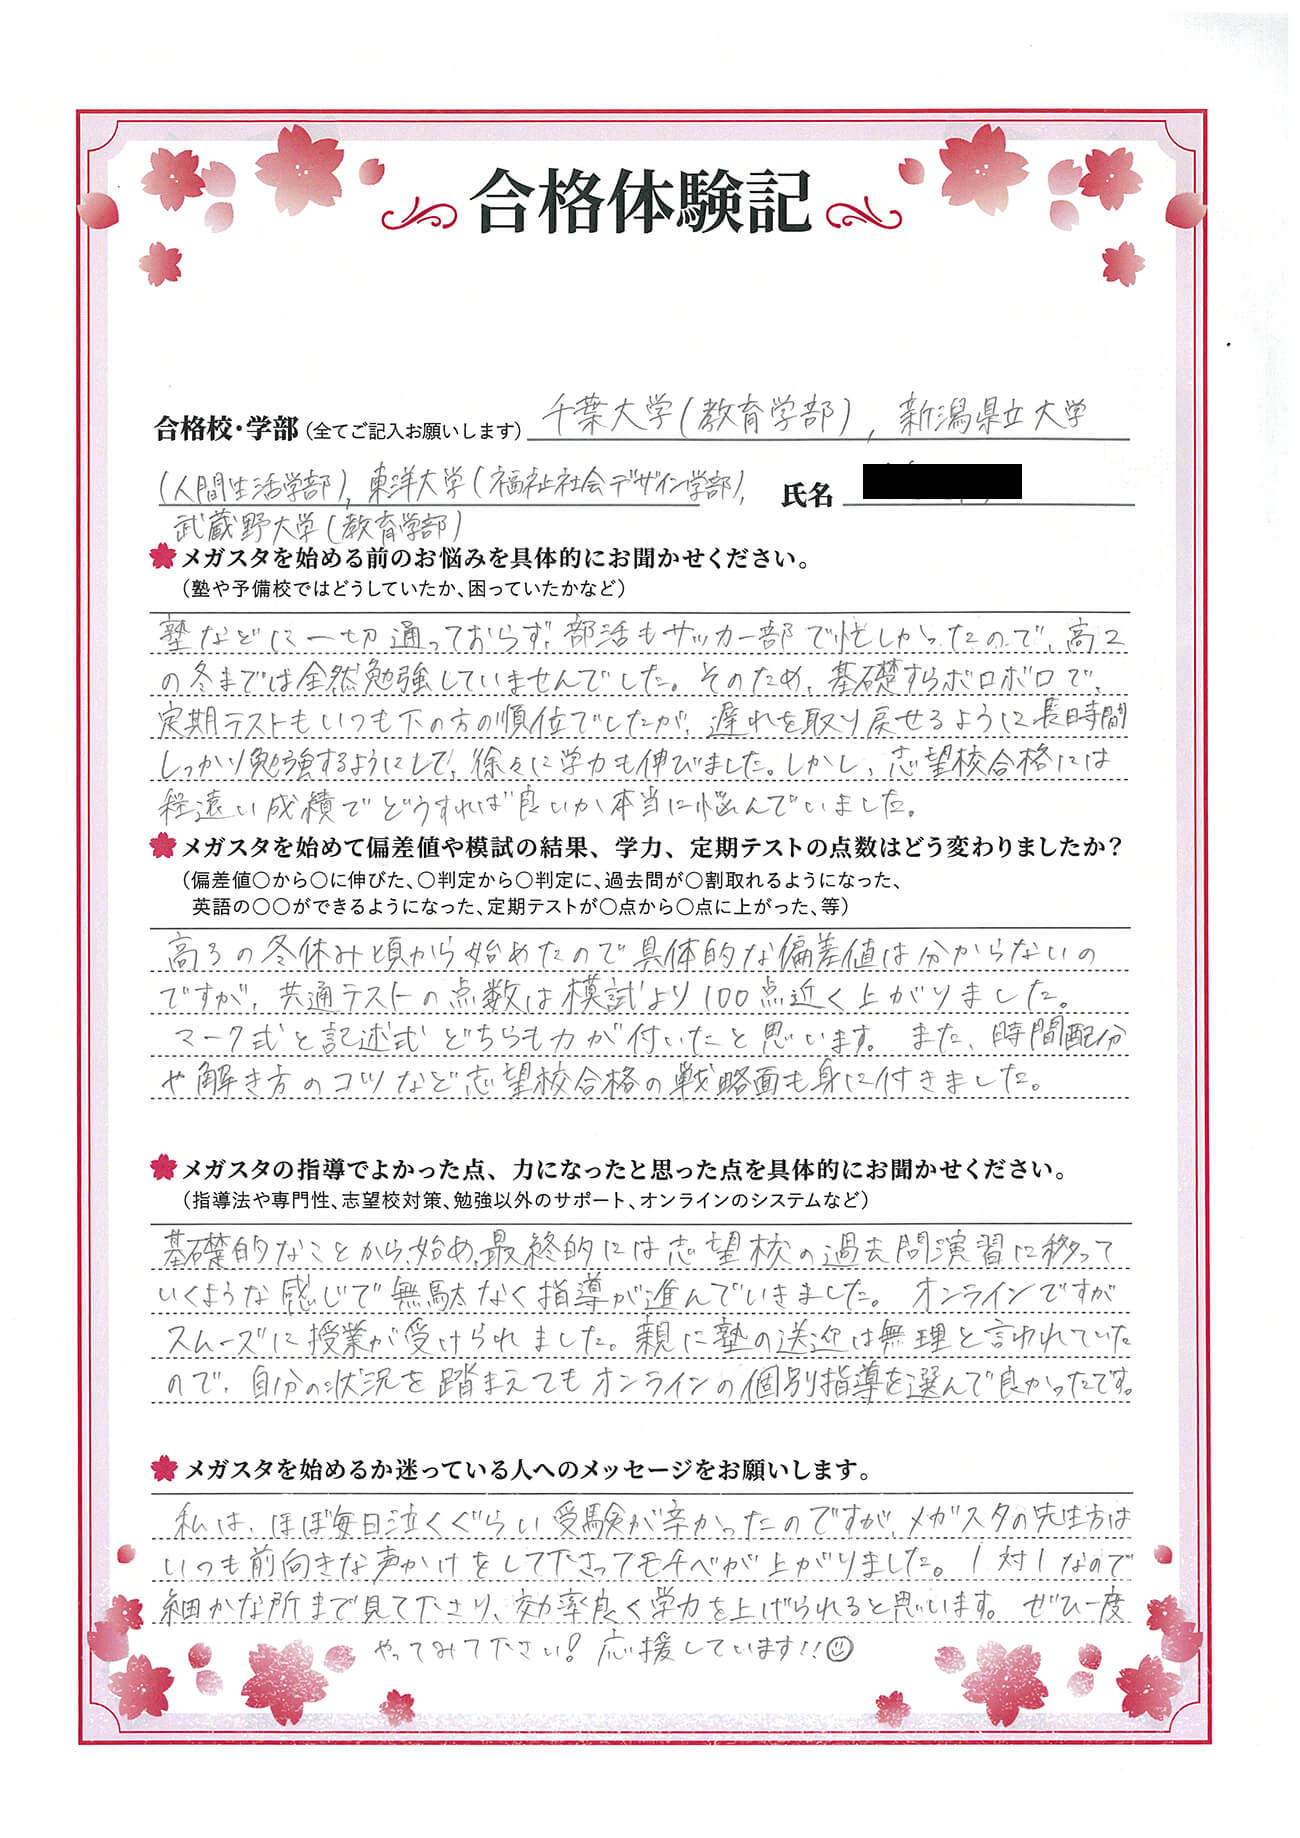 合格体験記
合格校・学部（全てご記入お願いします）千葉大学(教育学部), 新潟県立大学
(人間生活学部), 東洋大学(福祉社会デザイン学部), 氏名
武蔵野大学(教育学部)
メガスタを始める前のお悩みを具体的にお聞かせください。
（塾や予備校ではどうしていたか、困っていたかなど）
塾などに一切通っておらず、部活もサッカー部で忙しかったので、高2
の冬までは全然勉強していませんでした。そのため、基礎すらボロボロで、
定期テストもいつも下の方の順位でしたが、遅れを取り戻せるように長時間
しっかり勉強するようにして、徐々に学力も伸びました。しかし、志望校合格には
程遠い成績でどうすれば良いか本当に悩んでいました。
メガスタを始めて偏差値や模試の結果、学力、定期テストの点数はどう変わりましたか？
（偏差値〇から〇に伸びた、〇判定から〇判定に、過去問が〇割取れるようになった、
英語の〇〇ができるようになった、定期テストが〇点から〇点に上がった、等）
高3の冬休み頃から始めたので具体的な偏差値は分からないの
ですが、共通テストの点数は模試より100点近く上がりました。
マーク式と記述式どちらも力が付いたと思います。また、時間配分
や解き方のコツなど志望校合格の戦略面も身に付きました。
メガスタの指導でよかった点、力になったと思った点を具体的にお聞かせください。
（指導法や専門性、志望校対策、勉強以外のサポート、オンラインのシステムなど）
基礎的なことから始め、最終的には志望校の過去問演習に移って
いくような感じで無駄なく指導が進んでいきました。オンラインですが
スムーズに授業が受けられました。親に塾の送迎は無理と言われていた
ので、自分の状況を踏まえてもオンラインの個別指導を選んで良かったです。
メガスタを始めるか迷っている人へのメッセージをお願いします。
私は、ほぼ毎日泣くぐらい受験が辛かったのですが、メガスタの先生方は
いつも前向きな声かけをして下さってモチベが上がりました。1対1なので
細かな所まで見て下さり、効率良く学力を上げられると思います。ぜひ一度
やってみて下さい！応援しています!!☺